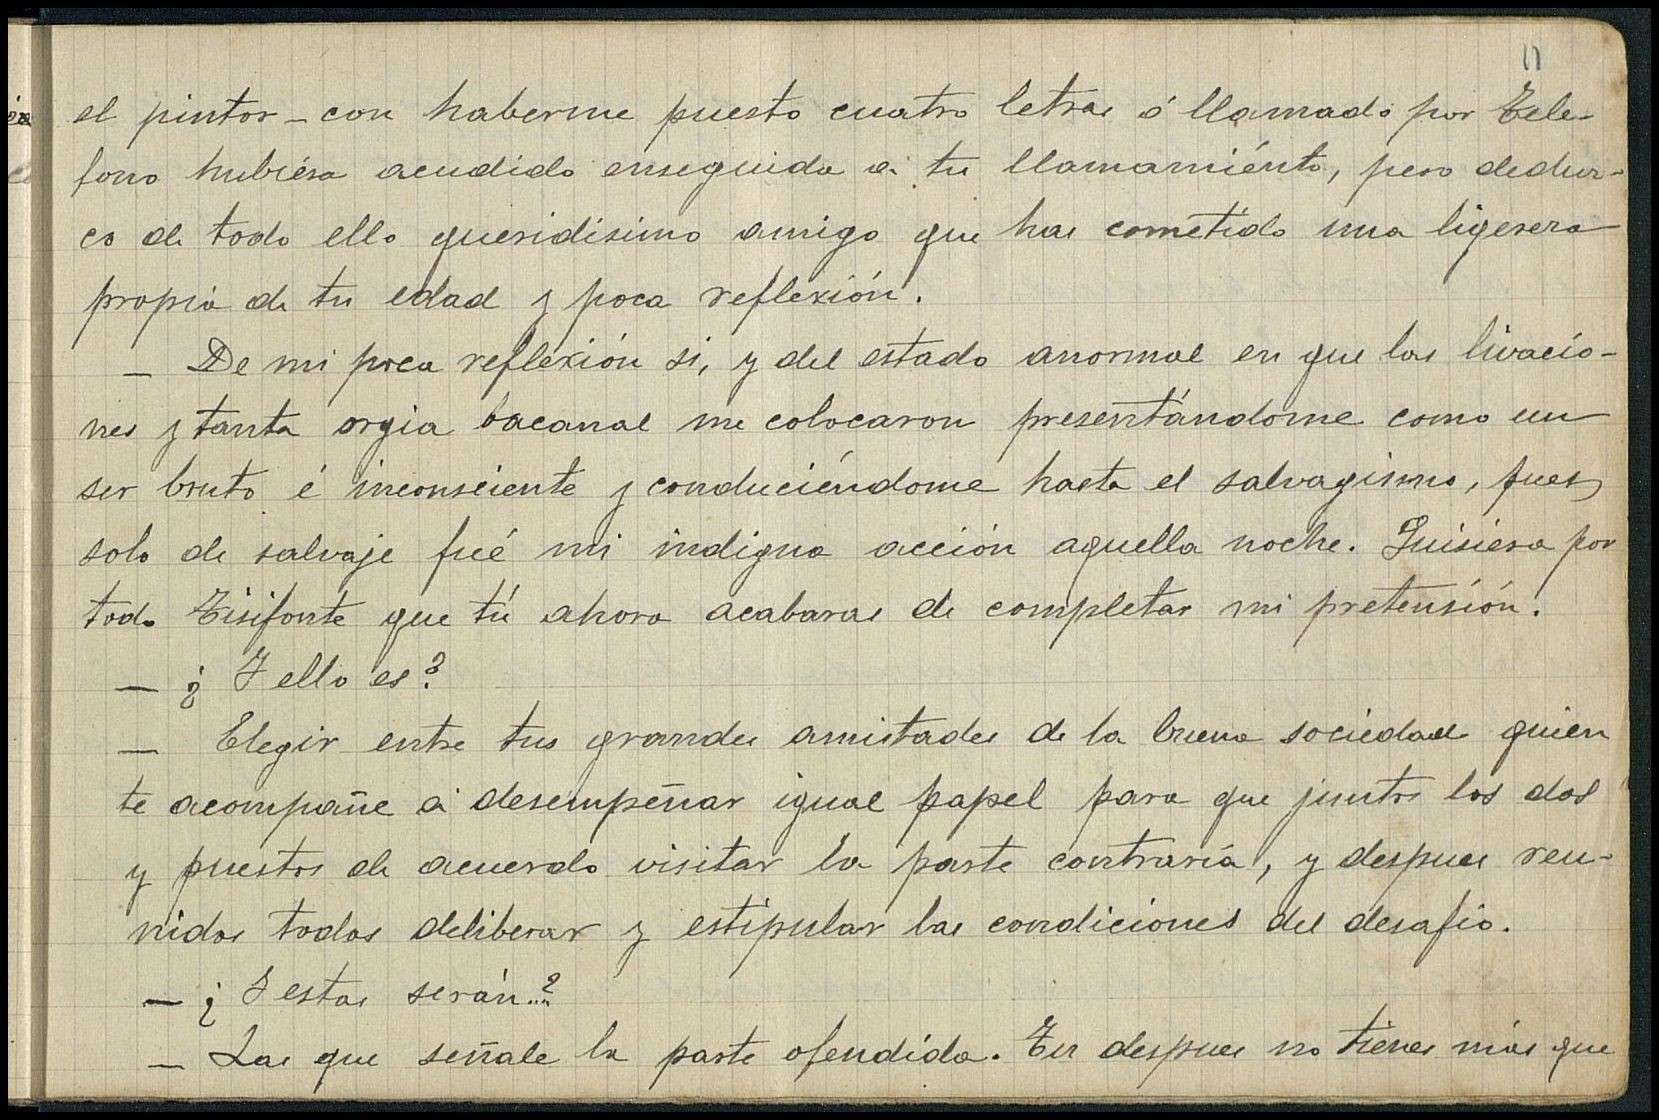 11
el pintor – con haberme puesto cuatro letras ó llamado por Tele-
fono hubiéra acudido enseguida á tu llamamiénto, pero deduz-
co de todo ello queridisimo amigo que has cometido una ligereza
propia de tu edad y poca reflexión.
— De mi poca reflexión si, y del estado anormal en que las livacio-
nes y tanta orgia bacanal me colocaron presentándome como un
ser bruto é inconsciente y conduciéndome hasta el salvagismo, pues
solo de salvaje fué mi indigna acción aquella noche. Quisiera por
todo Tisifonte que tú ahora acabaras de completar mi pretensión.
— ¿Y ello es?
— Elegir entre tus grandes amistades de la buena sociedad quien
te acompañe á desempeñar igual papel para que juntos los dos
y puestos de acuerdo visitar la parte contraria, y despues reu-
nidos todos deliberar y estipular las condiciones del desafio.
— ¿Y estas serán..?
— Las que señale la parte ofendida. Tu despues no tienes más que